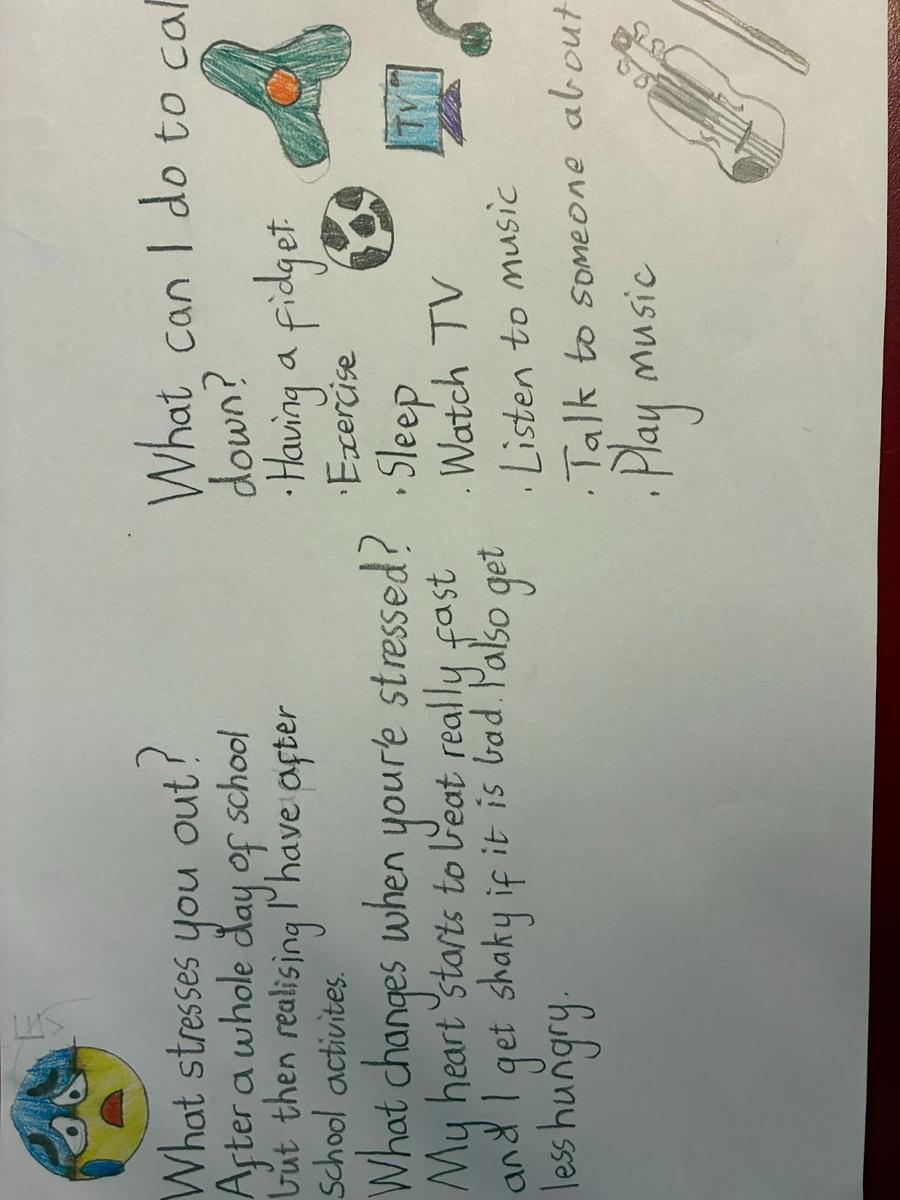 What stresses you out?
After a whole day of school
but then realising I have after
school activites.
What changes when your'e stressed?
My heart starts to beat really fast
and I get shaky if it is bad. I also get
less hungry.
What can I do to cal
down?
· Having a fidget.
· Exercise
· Sleep
· Watch TV
· Listen to music
· Talk to someone about
· Play music
TV